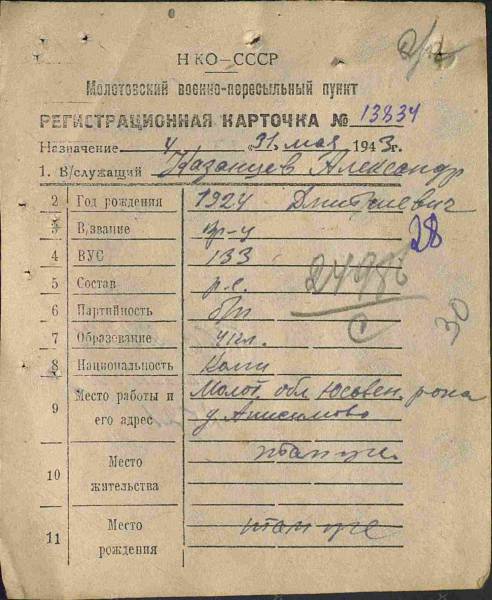 НКО—СССР
Молотовский военно-пересыльный пункт
РЕГИСТРАЦИОННАЯ КАРТОЧКА № 13834
Назначение 4 31. мая 1943г.
1. В/служащий Казанцев Александр
2 Год рождения 1924 Дмитриевич
3 В,звание кр-ц 28
4 ВУС 133
5 Состав р.с. 2498
6 Партийность б/п С 30
7 Образование 4 кл.
8 Национальность Коми
9 Место работы и его адрес Молот. обл Юсьвен. рона
д Анисимово
10 Место жительства там же
11 Место рождения там же